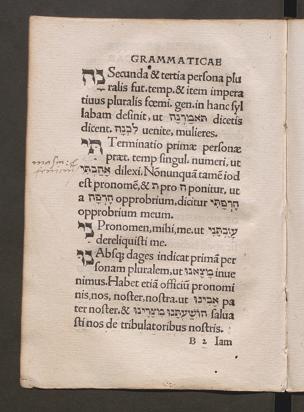 GRAMMATICAE
נָה Secunda & tertia persona plu
ralis fut. temp. & item impera
tiuus pluralis fœmi. gen. in hanc syl
labam desinit, ut תֹּאמַרְנָה dicetis
dicent. לֵכְנָה uenite, mulieres.
תִּי Terminatio primæ personæ
præt. temp singul. numeri, ut
אָהַבְתִּי dilexi. Nõnunquã tamẽ iod
est pronomẽ, & ת pro ה ponitur, ut
חֶרְפָּה opprobrium, dicitur חֶרְפָּתִי
opprobrium meum.
נִי Pronomen, mihi, me. ut עֲזַבְתַּנִי
dereliquisti me.
נוּ Absq; dages indicat primã per
sonam pluralem, ut מָצָאנוּ inue
nimus. Habet etiã officiũ pronomi
nis, nos, noster, nostra. ut אָבִינוּ pa
ter noster. & הוֹשַׁעְתָּנוּ מִצָּרֵינוּ salua
sti nos de tribulatoribus nostris.
B 2 Iam